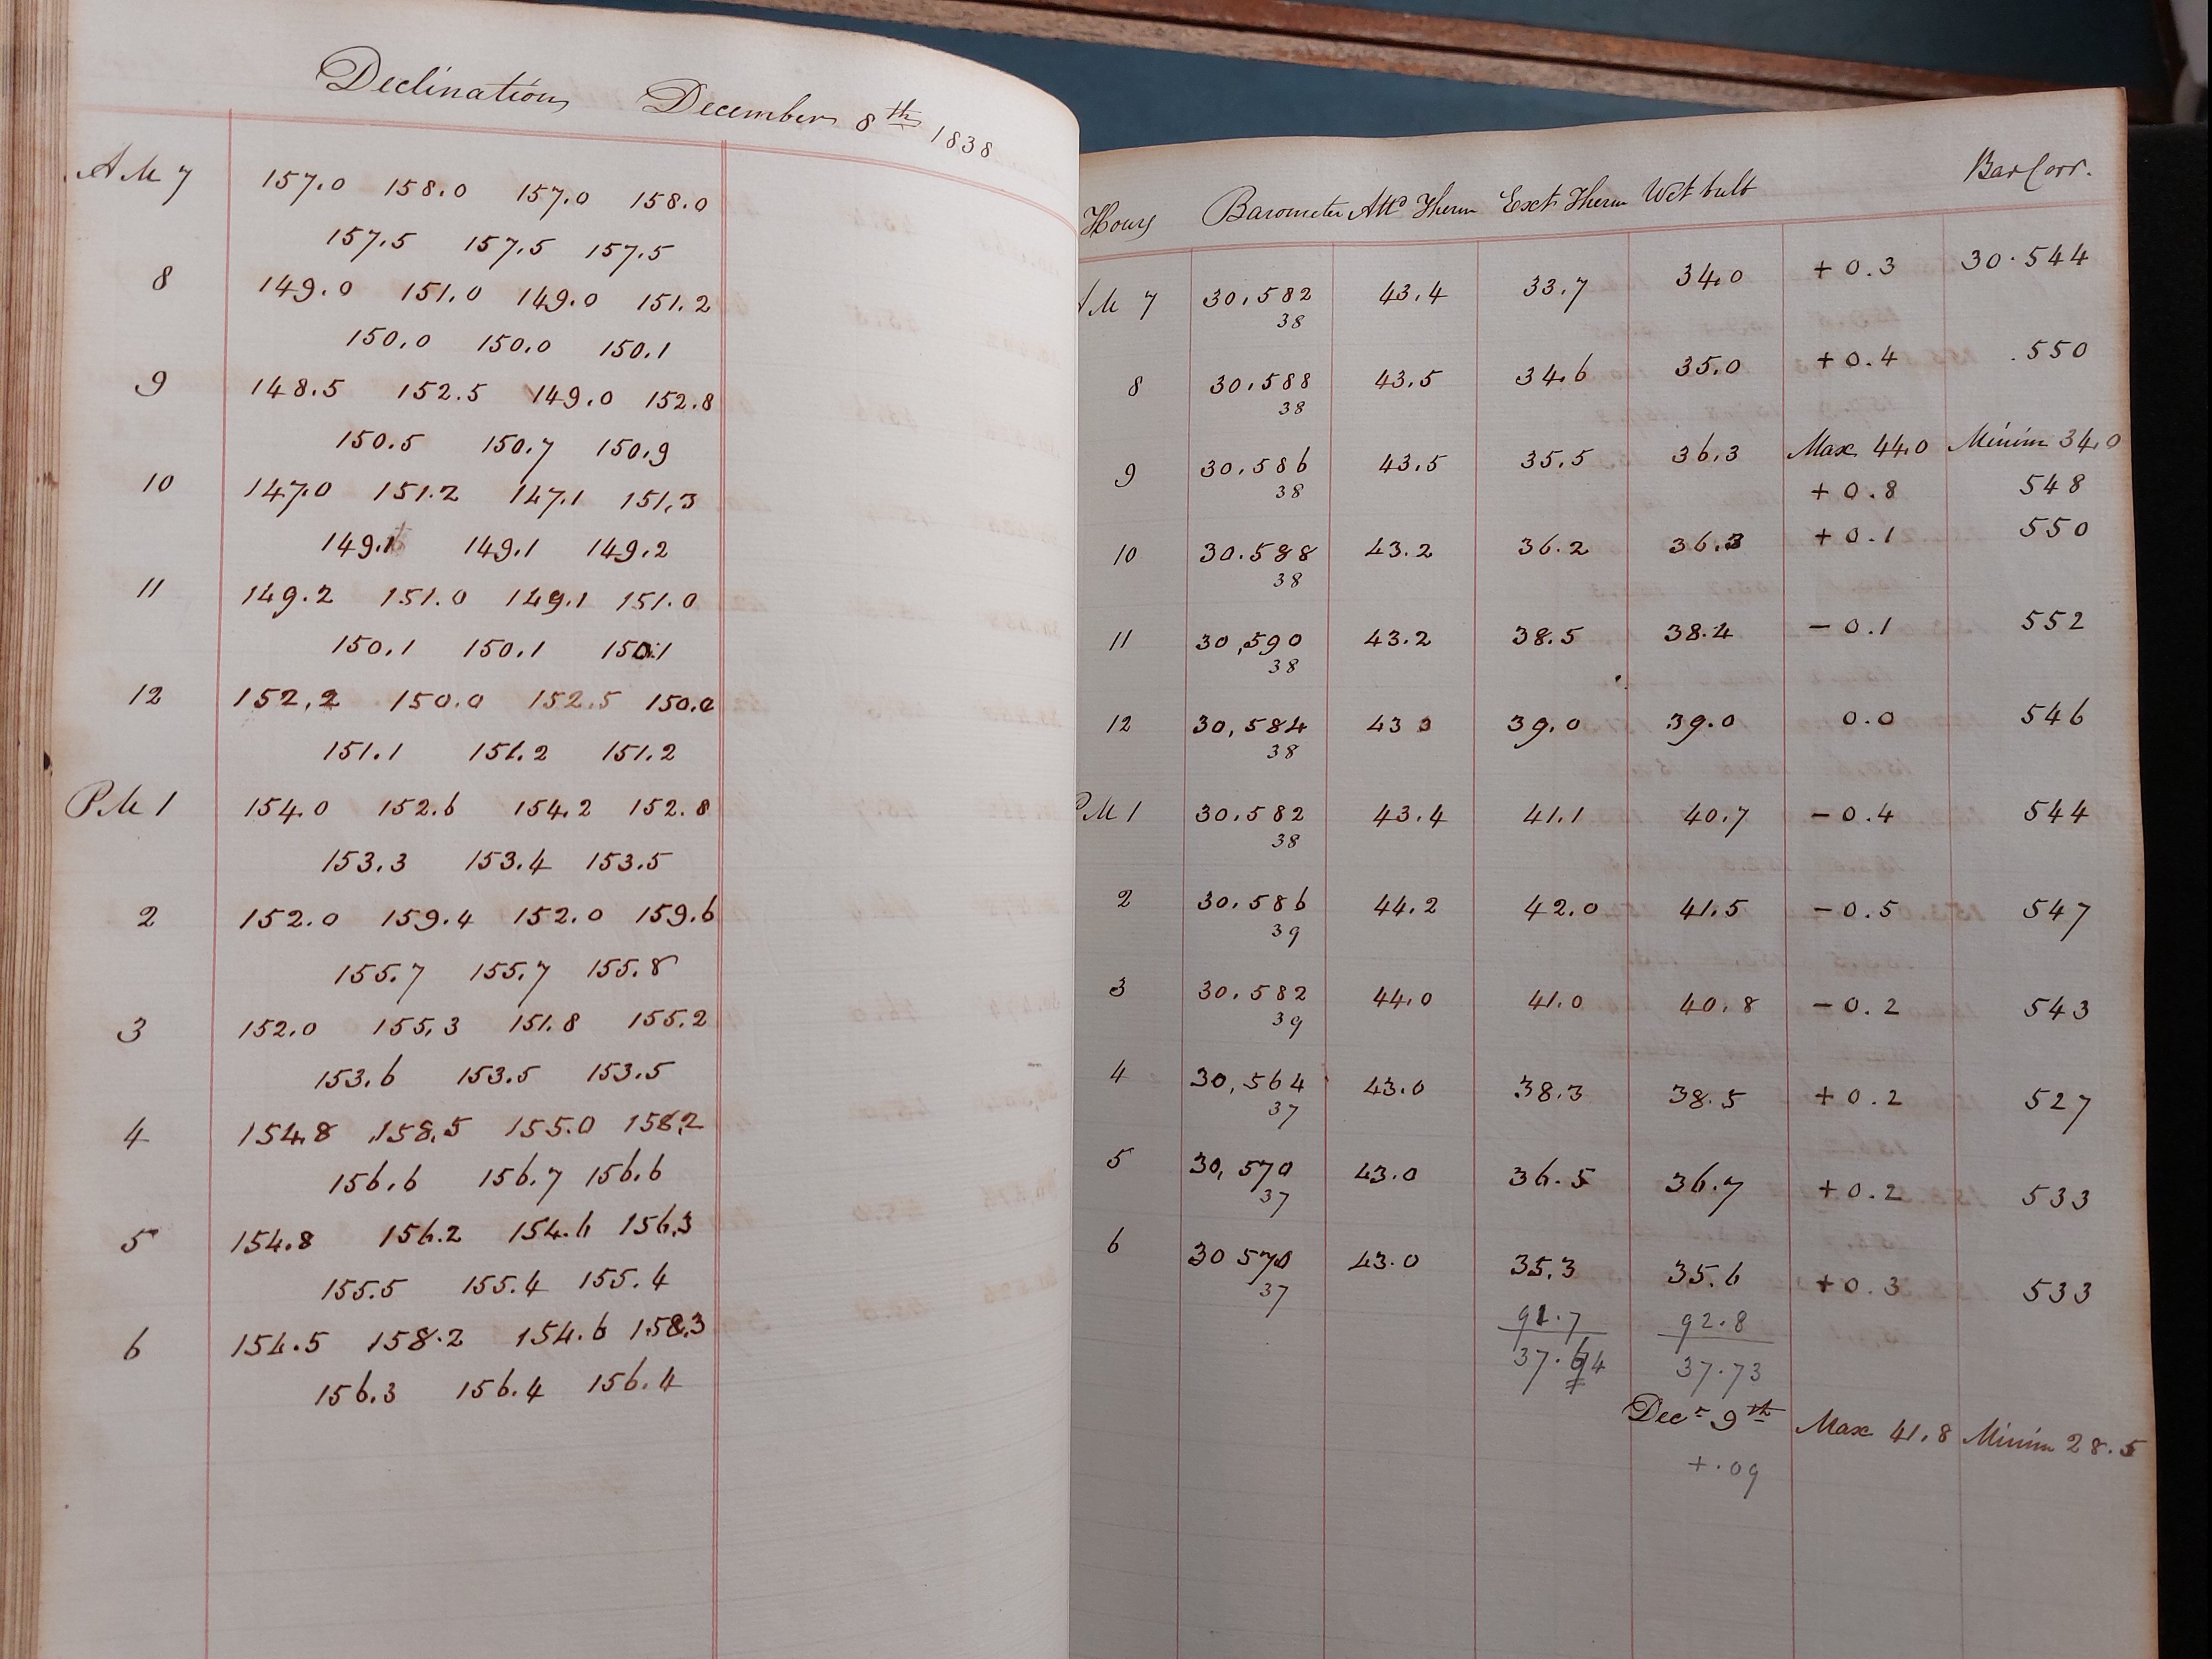 Declination December 8th 1838
A M 7 157.0 158.0 157.0 158.0
157.5 157.5 157.5
8 149.0 151.0 149.0 151.2
150.0 150.0 150.1
9 148.5 152.5 149.0 152.8
150.5 150.7 150.9
10 147.0 151.2 147.1 151.3
149.1 149.1 149.2
11 149.2 151.0 149.1 151.0
150.1 150.1 150.1
12 152.2 150.0 152.5 150.0
151.1 151.2 151.2
P M 1 154.0 152.6 154.2 152.8
153.3 153.4 153.5
2 152.0 159.4 152.0 159.6
155.7 155.7 155.8
3 152.0 155.3 151.8 155.2
153.6 153.5 153.5
4 154.8 158.5 155.0 158.2
156.6 156.7 156.6
5 154.8 156.2 154.6 156.3
155.5 155.4 155.4
6 154.5 158.2 154.6 158.3
156.3 156.4 156.4
Hours Barometer Attd Therm Ext Therm Wet bulb Bar Corr.
A M 7 30.582 43.4 33.7 34.0 + 0.3 30.544
38
8 30.588 43.5 34.6 35.0 + 0.4 .550
38
Max 44.0 Minim 34.0
9 30.586 43.5 35.5 36.3 + 0.8 548
38
10 30.588 43.2 36.2 36.3 + 0.1 550
38
11 30,590 43.2 38.5 38.4 - 0.1 552
38
12 30,584 43 0 39.0 39.0 0.0 546
38
P M 1 30.582 43.4 41.1 40.7 - 0.4 544
38
2 30.586 44.2 42.0 41.5 - 0.5 547
39
3 30.582 44.0 41.0 40.8 - 0.2 543
39
4 30,564 43.0 38.3 38.5 + 0.2 527
37
5 30,570 43.0 36.5 36.7 + 0.2 533
37
6 30 570 43.0 35.3 35.6 + 0.3 533
37
91.7 92.8
37.64 37.73
Decr 9th Max 41.8 Minim 28.5
+.09